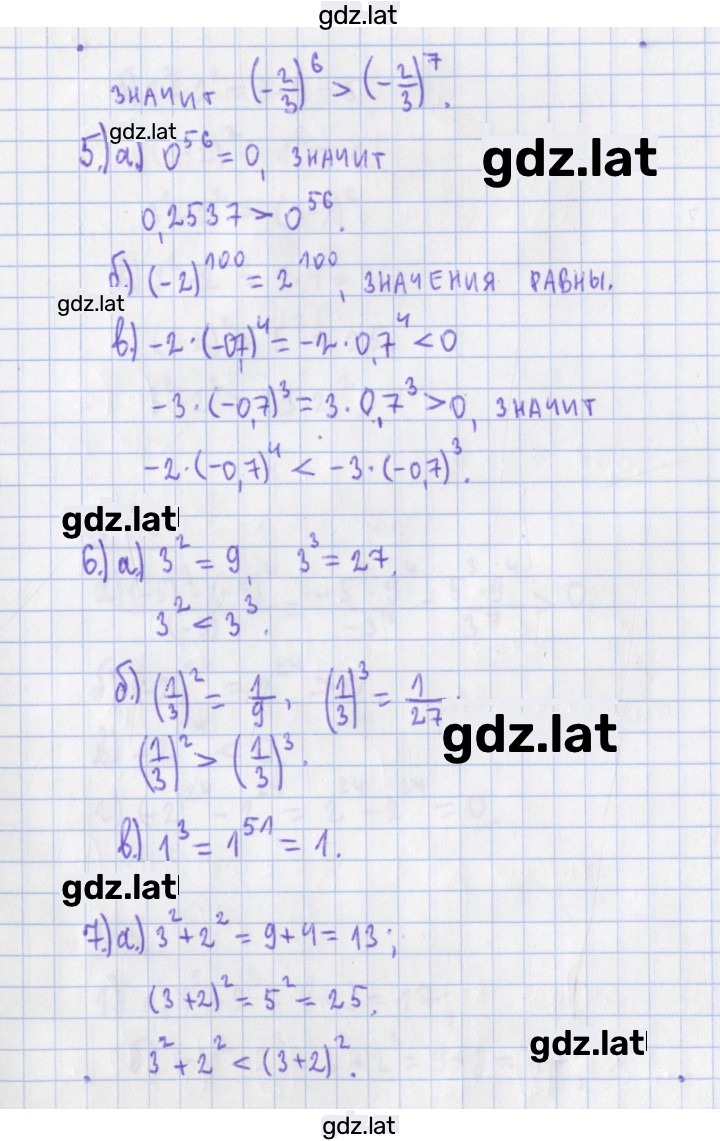 gdz.lat
значит (-2/3)^6 > (-2/3)^7.
gdz.lat
5.) а.) 0^56 = 0, значит
gdz.lat
0,2537 > 0^56.
б.) (-2)^100 = 2^100, значения равны.
gdz.lat
в.) -2·(-0,7)^4 = -2·0,7^4 < 0
-3·(-0,7)^3 = 3·0,7^3 > 0, значит
-2·(-0,7)^4 < -3·(-0,7)^3.
gdz.lat
6.) а.) 3^2 = 9, 3^3 = 27.
3^2 < 3^3.
б.) (1/3)^2 = 1/9, (1/3)^3 = 1/27.
gdz.lat
(1/3)^2 > (1/3)^3.
в.) 1^3 = 1^51 = 1.
gdz.lat
7.) а.) 3^2 + 2^2 = 9 + 4 = 13;
(3+2)^2 = 5^2 = 25.
gdz.lat
3^2 + 2^2 < (3+2)^2.
gdz.lat